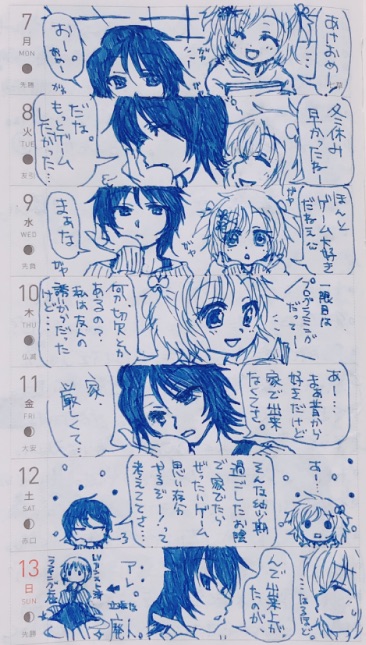 7
月
MON
先勝
あけおめー！
…
おー。
8
火
TUE
友引
冬休み
早かったねー
だな。
もっとゲーム
したかった…
9
水
WED
先負
ほんと
ゲーム大好き
だねえ
まぁな
10
木
THU
仏滅
一限目は
だってー
何か切欠とか
あるの？
私は友人の
誘いだった
けど…
11
金
FRI
大安
あー…
まぁ昔から
好きだけど
家で出来
なくてさ。
家、
厳しくて…
12
土
SAT
赤口
あー…
そんな幼少期
過ごしたお陰
で家でたら
ぜったいゲーム
思い存分
やるぞーって
考えててさ…
13
日
SUN
先勝
…なるほど。
んで出来上が
ったのが、
アレ。